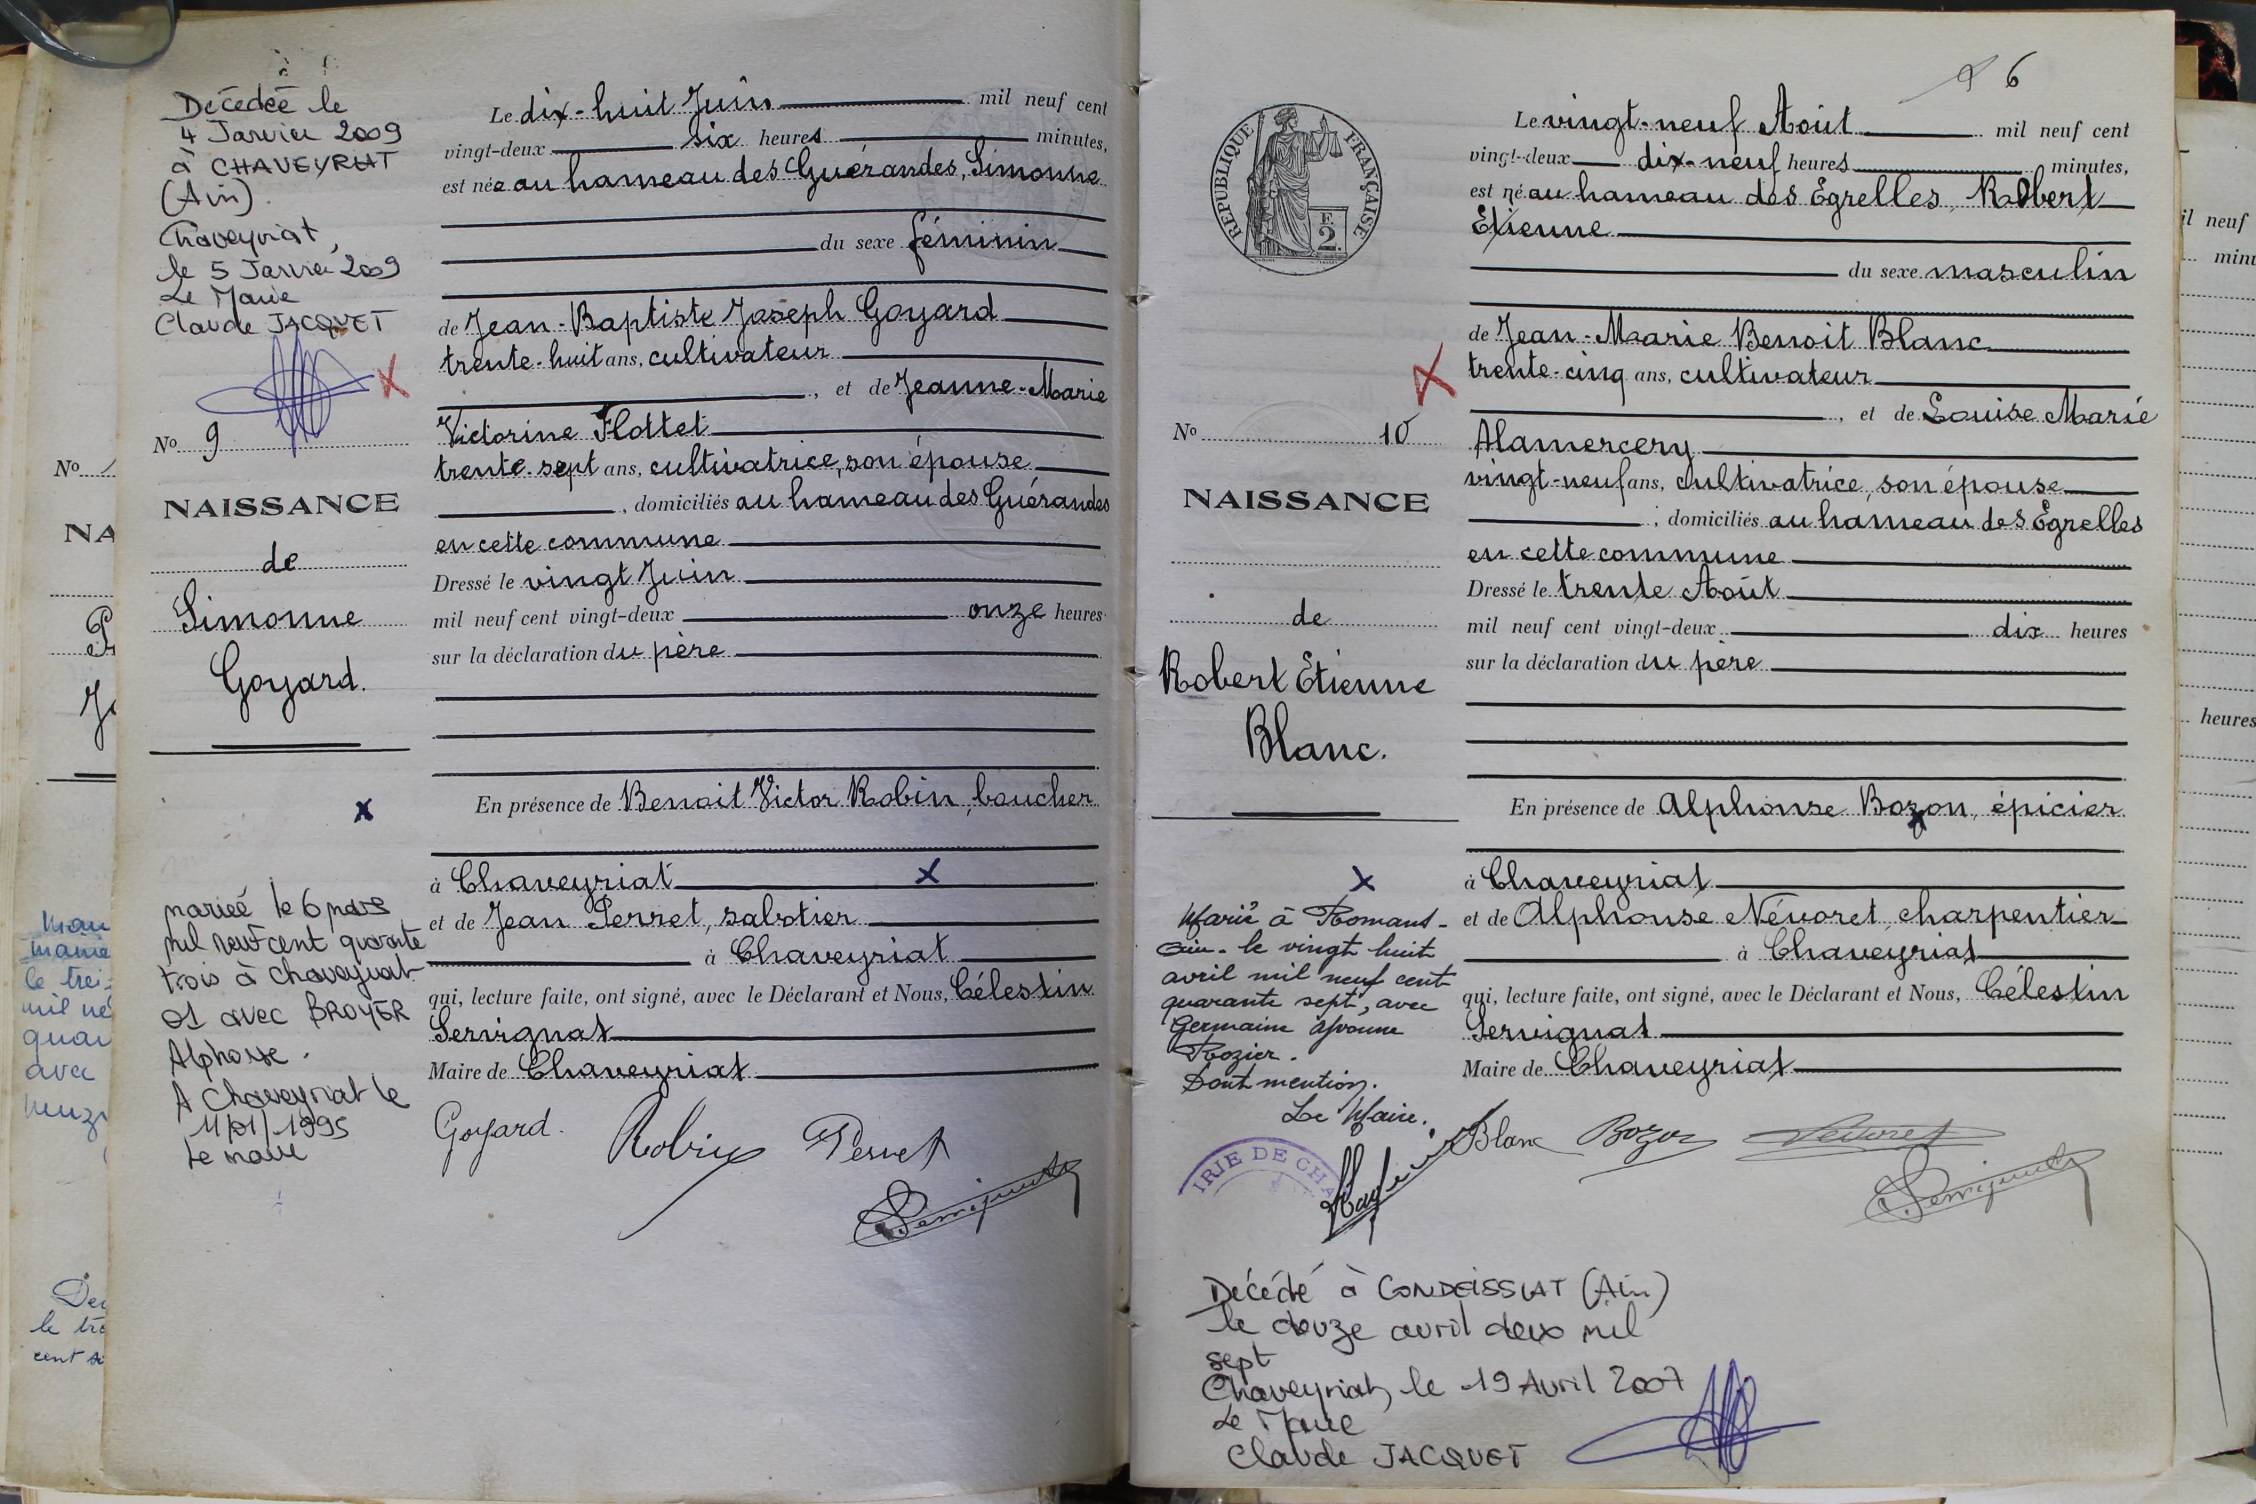 Décédée le
4 Janvier 2009
à CHAVEYRIAT
(Ain).
Chaveyriat,
le 5 Janvier 2009
Le Maire
Claude JACQUET
No 9
NAISSANCE
de
Simonne
Goyard.
mariée le 6 mars
mil neuf cent quarante
trois à Chaveyriat
01 avec BROYER
Alphonse.
A Chaveyriat le
11/01/1995
Le maire
Le dix-huit Juin mil neuf cent
vingt-deux six heures minutes,
est née au hameau des Guérandes, Simonne
du sexe féminin
de Jean-Baptiste Joseph Goyard
trente-huit ans, cultivateur
, et de Jeanne-Marie
Victorine Flottet
trente-sept ans, cultivatrice, son épouse
, domiciliés au hameau des Guérandes
en cette commune
Dressé le vingt Juin
mil neuf cent vingt-deux onze heures
sur la déclaration du père
En présence de Benoit Victor Robin, boucher
à Chaveyriat
et de Jean Perret, sabotier
à Chaveyriat
qui, lecture faite, ont signé, avec le Déclarant et Nous, Célestin
Servignat
Maire de Chaveyriat
Goyard. Robin Perret
Servignat
6
RÉPUBLIQUE FRANÇAISE
F.
2.
No 10
NAISSANCE
de
Robert Etienne
Blanc.
Marié à Romans-
Ain- le vingt huit
avril mil neuf cent
quarante sept, avec
Germaine Yvonne
Rozier.
Dont mention.
Le Maire.
IRIE DE CHA
Le vingt-neuf Août mil neuf cent
vingt-deux dix-neuf heures minutes,
est né au hameau des Egrelles, Robert
Etienne
du sexe masculin
de Jean-Marie Benoit Blanc
trente-cinq ans, cultivateur
, et de Louise Marie
Alamercery
vingt-neuf ans, cultivatrice, son épouse
, domiciliés au hameau des Egrelles
en cette commune
Dressé le trente Août
mil neuf cent vingt-deux dix heures
sur la déclaration du père
En présence de Alphonse Bozon, épicier
à Chaveyriat
et de Alphonse Névoret, charpentier
à Chaveyriat
qui, lecture faite, ont signé, avec le Déclarant et Nous, Célestin
Servignat
Maire de Chaveyriat
Blanc Bozon Névoret
Servignat
Décédé à CONDEISSIAT (Ain)
le douze avril deux mil
sept
Chaveyriat, le 19 Avril 2007
Le Maire
Claude JACQUET